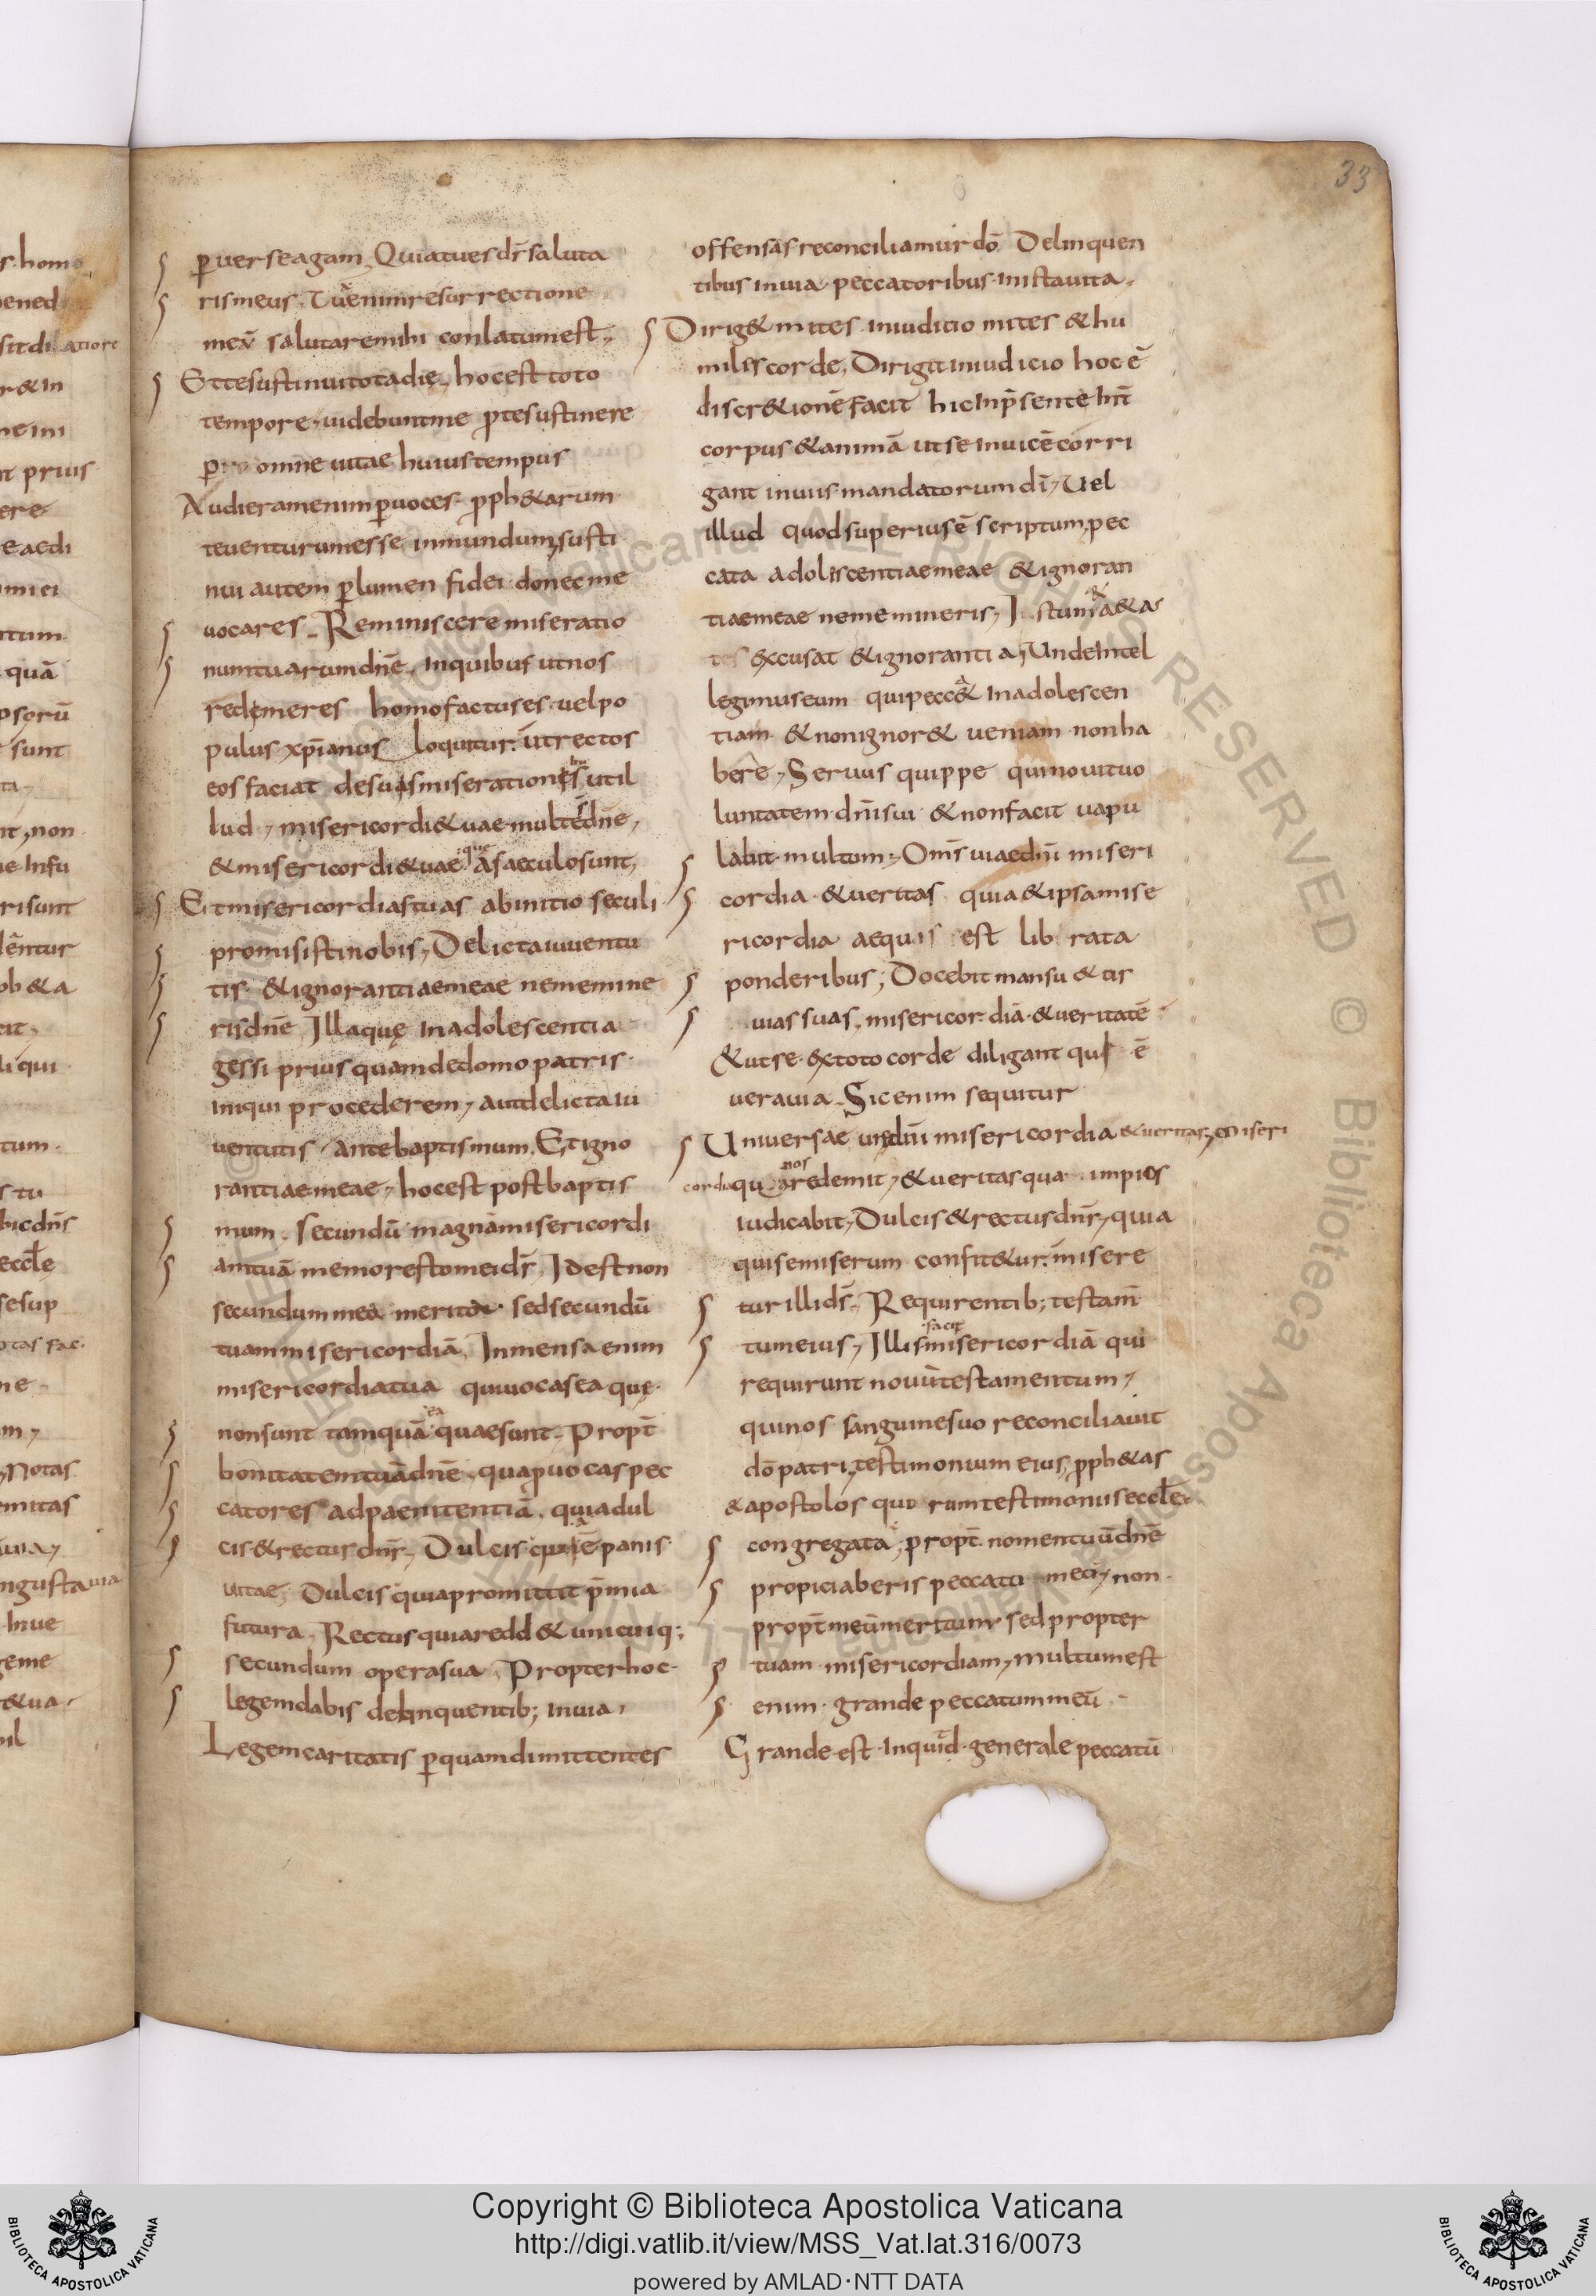 33
ꝑuerse agam. Quia tu es dr̄ saluta
ris meus. Tua enim resurrectione
meū salutare mihi conlatum est.
Et te sustinui tota die. hoc est toto
tempore. uidebunt me ꝓ te sustinere
omne uitae huius tempus
Audieram enim ꝑ uoces ꝓph&arum
te uenturum esse in mundum, susti
nui autem ꝑ lumen fidei donec me
uocares. Reminiscere miseratio
num tuarum dnē. in quibus ut nos
redemeres homo factus es. uel po
pulus xp̄ianus loquitur. ut rectos
eos faciat de suis miserationibus ut il
lud, misericordi& uae multę dnē,
& misericordi& uae quę a saeculo sunt,
Et misericordias tuas ab initio seculi
promisisti nobis, Delicta iuuentu
tis & ignorantiae meae ne memine
ris dnē Illa quę in adolescentia
gessi prius quam de domo patris
iniqui procederem, aut delicta iu
uentutis ante baptismum. Et igno
rantiae meae, hoc est post baptis
mum. secundū magnam misericordi
am tuā memor esto mei dr̄. Id est non
secundum mea merita sed secundū
tuam misericordiā. Inmensa enim
misericordia tua qui uocas ea quę
non sunt tamquā ea quae sunt. Propt̄
bonitatem tuā dnē. qua ꝑuocas pec
catores ad paenitentiā. quia dul
cis & rectus dnr̄, Dulcis quia ē panis
uitae, Dulcis quia promittit p̄mia
futura. Rectus quia redd& unicuiq;
secundum opera sua. Propter hoc
legem dabis delinquentib; in uia,
Legem caritatis ꝑ quam dimittentes
offensas reconciliamur dō Delinquen
tibus in uia peccatoribus in ista uita.
Dirig& mites in iuditio mites & hu
miles corde, Dirigit in iudicio hoc ē
discr&ionē facit hic in p̄sente int̄
corpus & animā ut se inuicē corri
gant in uiis mandatorum dī, Uel
illud quod superius ē scriptum, pec
cata adoliscentiae meae & ignoran
tiae meae ne memineris,
excusat & ignorantia, Unde intel
legimus eum qui pecc& in adolescen
tiam & non ignor& ueniam non ha
bere, Seruus quippe qui nouit uo
luntatem dnī sui & non facit uapu
labit multum, Oms̄ uiae dnī miseri
cordia & ueritas quia & ipsa mise
ricordia aequis est librata
ponderibus; Docebit mansu&us
uias suas. misericordiā & ueritatē
& ut se ex toto corde diligant qui ē
uera uia. Sic enim sequitur
Uniuersae uię dnī misericordia & ueritas, miseri
cordia qua nos redemit, & ueritas qua impios
iudicabit, Dulcis & rectus dnr̄, quia
qui se miserum confit&ur. misere
tur illi ds̄. Requirentib; testam̄
tum eius, Illis facit misericordiā qui
requirunt nouū testamentum,
qui nos sanguine suo reconciliauit
dō patri, testimonium eius, ꝓph&as
& apostolos quorum testimoniis eccłę
congregata, propt̄ nomen tuū dnē
propiciaberis peccato meo, non
propt̄ meū meritum sed propter
tuam misericordiam, multum est
enim grande peccatum meū
Grande est inquid generale peccatū
Copyright © Biblioteca Apostolica Vaticana
http://digi.vatlib.it/view/MSS_Vat.lat.316/0073
powered by AMLAD·NTT DATA